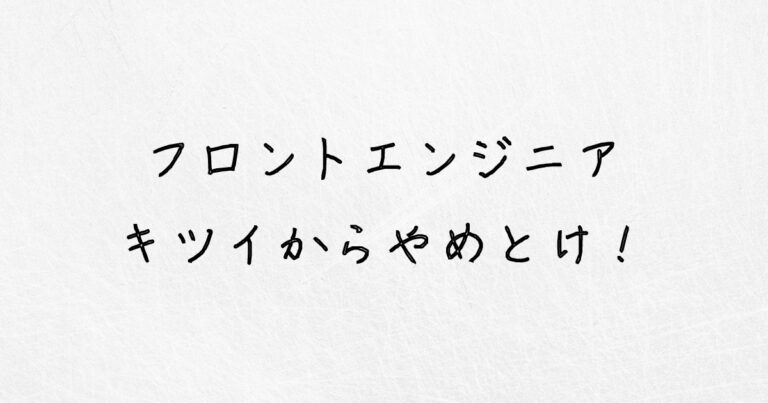 フロントエンジニア
キツイからやめとけ！